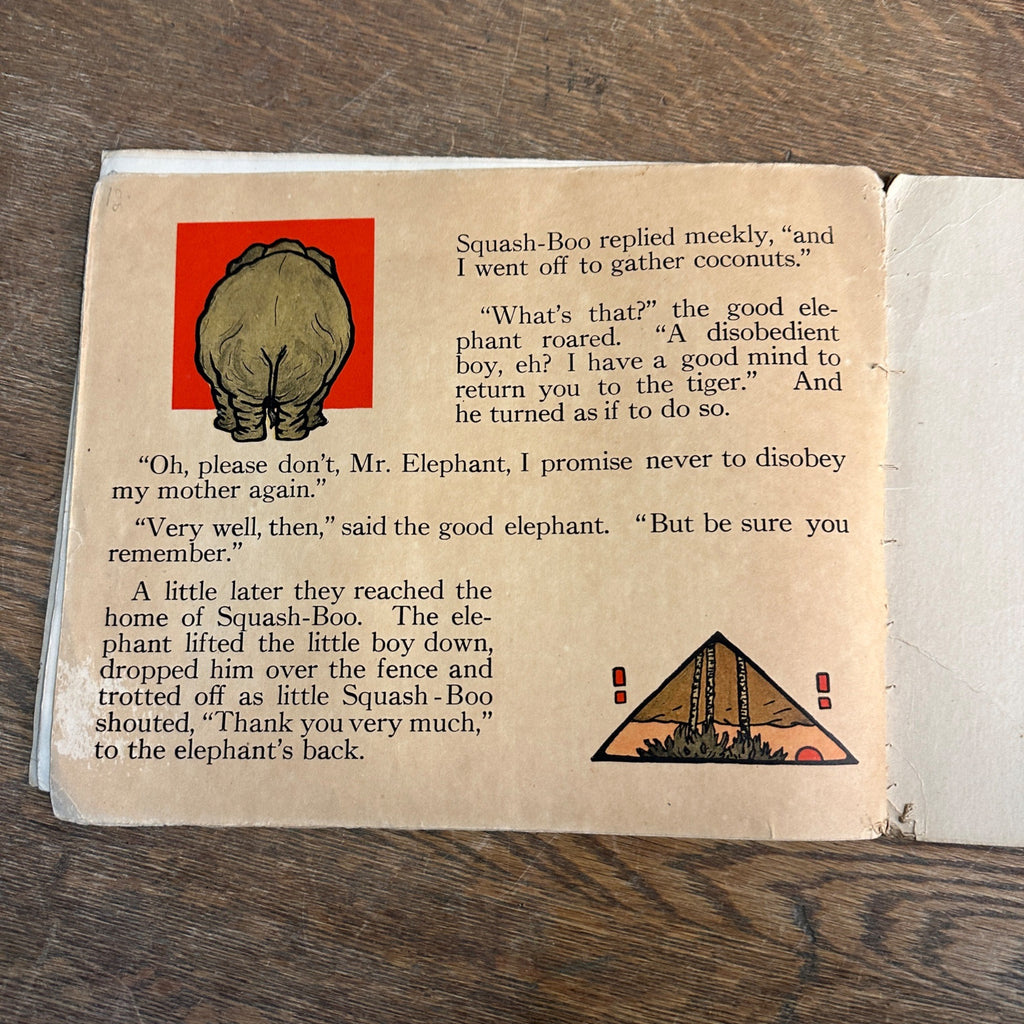 12
Squash-Boo replied meekly, “and
I went off to gather coconuts.”
“What’s that?” the good ele-
phant roared. “A disobedient
boy, eh? I have a good mind to
return you to the tiger.” And
he turned as if to do so.
“Oh, please don’t, Mr. Elephant, I promise never to disobey
my mother again.”
“Very well, then,” said the good elephant. “But be sure you
remember.”
A little later they reached the
home of Squash-Boo. The ele-
phant lifted the little boy down,
dropped him over the fence and
trotted off as little Squash-Boo
shouted, “Thank you very much,”
to the elephant’s back.